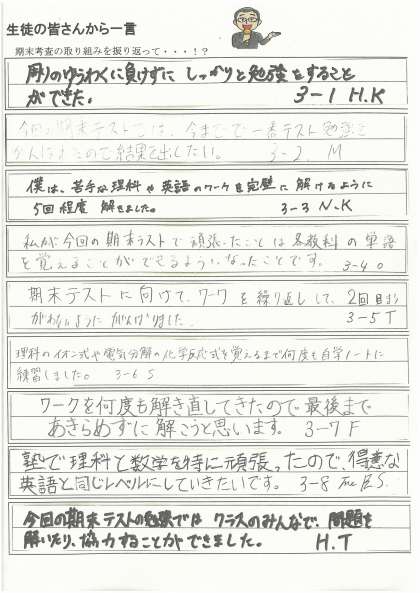 生徒の皆さんから一言
期末考査の取り組みを振り返って・・・!?
周りのゆうわくに負けずに しっかりと勉強をすること
ができた。 3-1 H.K
今回の期末テストでは、今までで一番テスト勉強を
がんばれたので結果を出したい。 3-2. M
僕は、苦手な理科や英語のワークを完璧に解けるように
5回程度 解きました。 3-3 N.K
私が今回の期末テストで頑張ったことは各教科の単語
を覚えることができるようになったことです。 3-4 O
期末テストに向けて、ワークを繰り返しして、2回目より
がわかるようにがんばりました。 3-5 T
理科のイオン式や電気分解の化学反応式を覚えるまで何度も自学ノートに
練習しました。 3-6 S
ワークを何度も解き直してきたので最後まで
あきらめずに解こうと思います。 3-7 F
塾で理科と数学を特に頑張ったので、得意な
英語と同じレベルにしていきたいです。 3-8 S.
今回の期末テストの勉強では クラスのみんなで、問題を
解いたり、協力することができました。 H.T